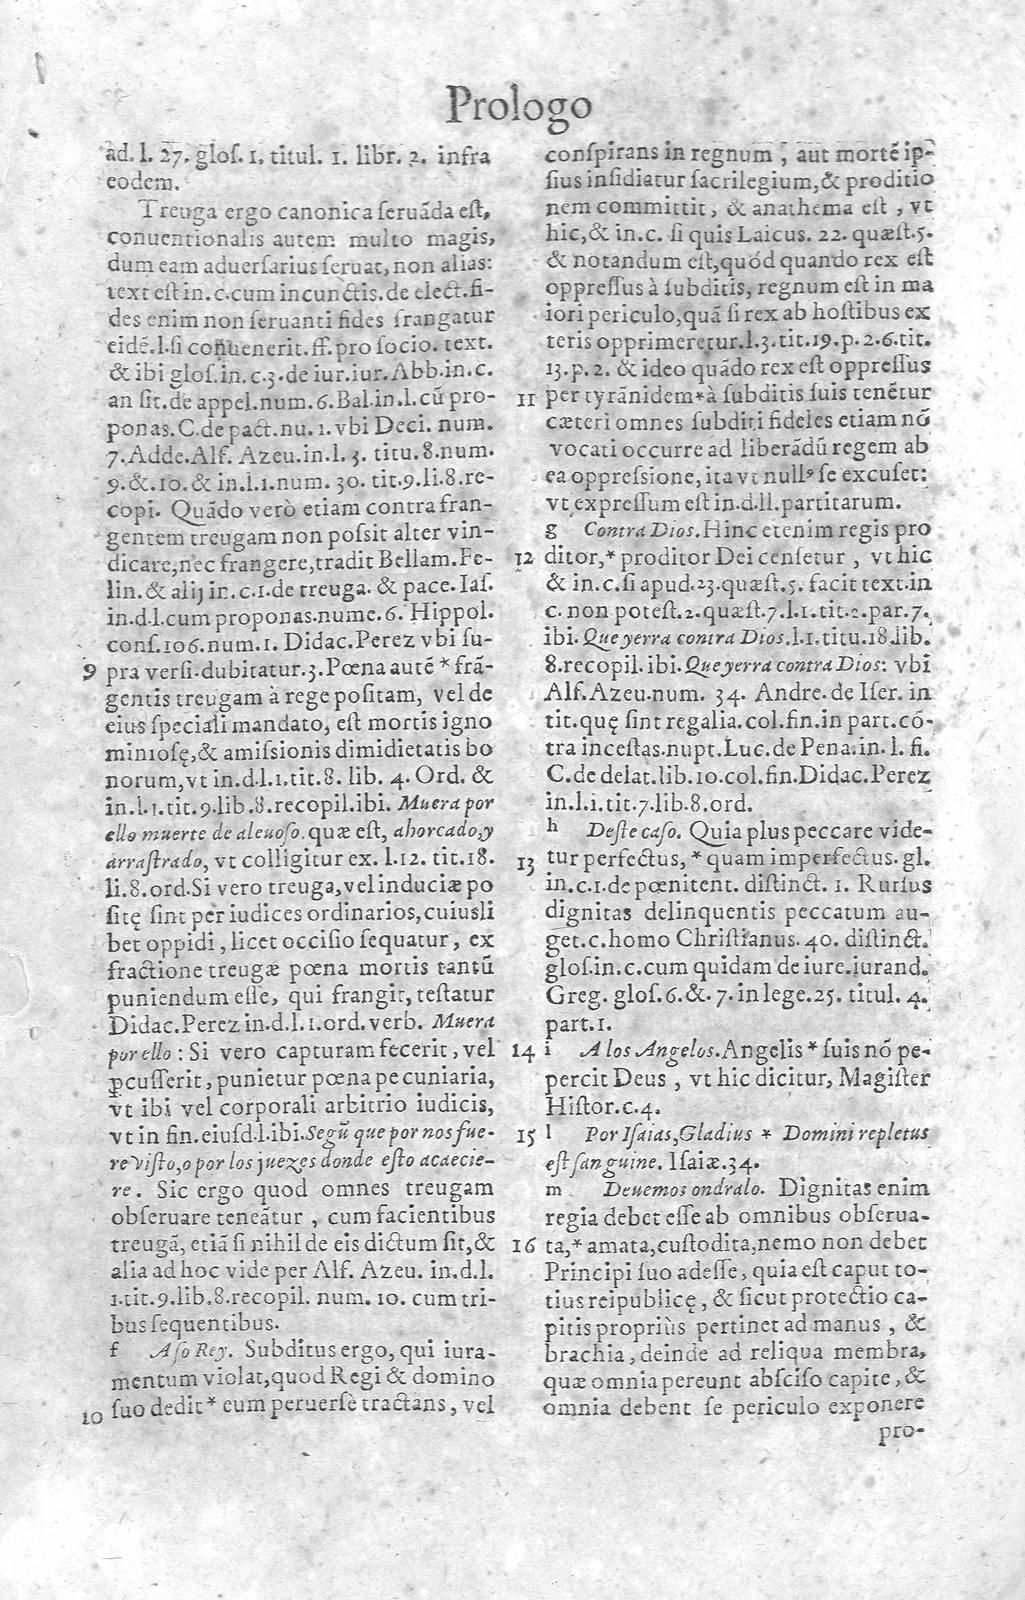 Prologo
ad. l. 27. gloſ. 1. titul. 1. libr. 2. infra
eodem.
Treuga ergo canonica ſeruãda eſt,
conuentionalis autem multo magis,
dum eam aduerſarius ſeruat, non alias:
text eſt in. c. cum in cunctis. de elect. fi-
des enim non ſeruanti fides frangatur
eidẽ. l. ſi conuenerit. ff. pro ſocio. text.
& ibi gloſ. in. c. 3. de iur. iur. Abb. in. c.
an ſit. de appel. num. 6. Bal. in. l. cũ pro-
ponas. C. de pact. nu. 1. vbi Deci. num.
7. Adde. Alf. Azeu. in. l. 3. titu. 8. num.
9. &. 10. & in. l. 1. num. 30. tit. 9. li. 8. re-
copi. Quãdo verò etiam contra fran-
gentem treugam non poſsit alter vin-
dicare, nec frangere, tradit Bellam. Fe-
lin. & alij in. c. 1. de treuga. & pace. Iaſ.
in. d. l. cum proponas. nume. 6. Hippol.
conſ. 106. num. 1. Didac. Perez vbi ſu-
9 pra verſi. dubitatur. 3. Pœna autẽ * frã-
gentis treugam à rege poſitam, vel de
eius ſpeciali mandato, eſt mortis igno
minioſę, & amiſsionis dimidietatis bo
norum, vt in. d. l. 1. tit. 8. lib. 4. Ord. &
in. l. 1. tit. 9. lib. 8. recopil. ibi. Muera por
ello muerte de aleuoſo. quæ eſt, ahorcado, y
arraſtrado, vt colligitur ex. l. 12. tit. 18.
li. 8. ord. Si vero treuga, vel induciæ po
ſitę ſint per iudices ordinarios, cuiusli
bet oppidi, licet occiſio ſequatur, ex
fractione treugæ pœna mortis tantũ
puniendum eſſe, qui frangit, teſtatur
Didac. Perez in. d. l. 1. ord. verb. Muera
por ello: Si vero capturam fecerit, vel
ꝑcuſſerit, punietur pœna pecuniaria,
vt ibi vel corporali arbitrio iudicis,
vt in fin. eiuſd. l. ibi. Segũ que por nos fue-
re viſto, o por los juezes donde eſto acaecie-
re. Sic ergo quod omnes treugam
obſeruare teneãtur, cum facientibus
treugã, etiã ſi nihil de eis dictum ſit, &
alia ad hoc vide per Alf. Azeu. in. d. l.
1. tit. 9. lib. 8. recopil. num. 10. cum tri-
bus ſequentibus.
f A ſo Rey. Subditus ergo, qui iura-
mentum violat, quod Regi & domino
10 ſuo dedit * eum peruerſè tractans, vel
conſpirans in regnum, aut mortẽ ip-
ſius inſidiatur ſacrilegium, & proditio
nem committit, & anathema eſt, vt
hic, & in. c. ſi quis Laicus. 22. quæſt. 5.
& notandum eſt, quód quando rex eſt
oppreſſus à ſubditis, regnum eſt in ma
iori periculo, quã ſi rex ab hoſtibus ex
teris opprimeretur. l. 3. tit. 19. p. 2. 6. tit.
13. p. 2. & ideo quãdo rex eſt oppreſſus
11 per tyrãnidem * à ſubditis ſuis tenẽtur
cæteri omnes ſubditi fideles etiam nõ
vocati occurre ad liberãdũ regem ab
ea oppreſsione, ita vt nullꝰ ſe excuſet:
vt expreſſum eſt in. d. ll. partitarum.
g Contra Dios. Hinc etenim regis pro
12 ditor, * proditor Dei cenſetur, vt hic
& in. c. ſi apud. 23. quæſt. 5. facit text. in
c. non poteſt. 2. quæſt. 7. l. 1. tit. 2. par. 7.
ibi. Que yerra contra Dios. l. 1. titu. 18. lib.
8. recopil. ibi. Que yerra contra Dios: vbi
Alf. Azeu. num. 34. Andre. de Iſer. in
tit. quę ſint regalia. col. fin. in part. cõ-
tra inceſtas. nupt. Luc. de Pena. in. l. fi.
C. de delat. lib. 10. col. fin. Didac. Perez
in. l. 1. tit. 7. lib. 8. ord.
h Deſte caſo. Quia plus peccare vide-
13 tur perfectus, * quam imperfectus. gl.
in. c. 1. de pœnitent. diſtinct. 1. Rurſus
dignitas delinquentis peccatum au-
get. c. homo Chriſtianus. 40. diſtinct.
gloſ. in. c. cum quidam de iure. iurand.
Greg. gloſ. 6. &. 7. in lege. 25. titul. 4.
part. 1.
14 i A los Angelos. Angelis * ſuis nõ pe-
percit Deus, vt hic dicitur, Magiſter
Hiſtor. c. 4.
15 l Por Iſaias, Gladius * Domini repletus
eſt ſanguine. Iſaiæ. 34.
m Deuemos ondralo. Dignitas enim
regia debet eſſe ab omnibus obſerua-
16 ta, * amata, cuſtodita, nemo non debet
Principi ſuo adeſſe, quia eſt caput to-
tius reipublicę, & ſicut protectio ca-
pitis propriùs pertinet ad manus, &
brachia, deinde ad reliqua membra,
quæ omnia pereunt abſciſo capite, &
omnia debent ſe periculo exponere
pro-